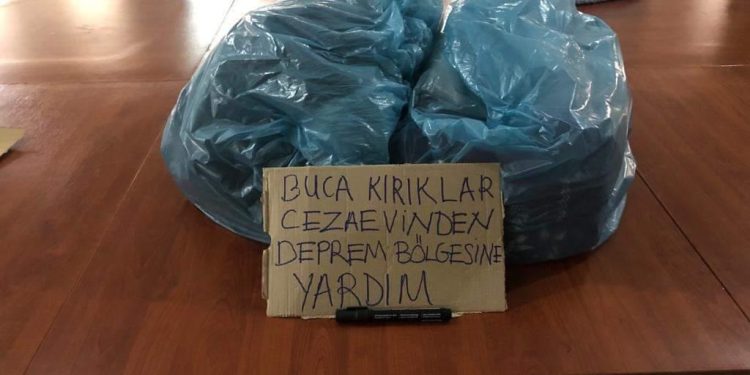 BUCA KIRIKLAR
CEZAEVİNDEN
DEPREM BÖLGESİNE
YARDIM